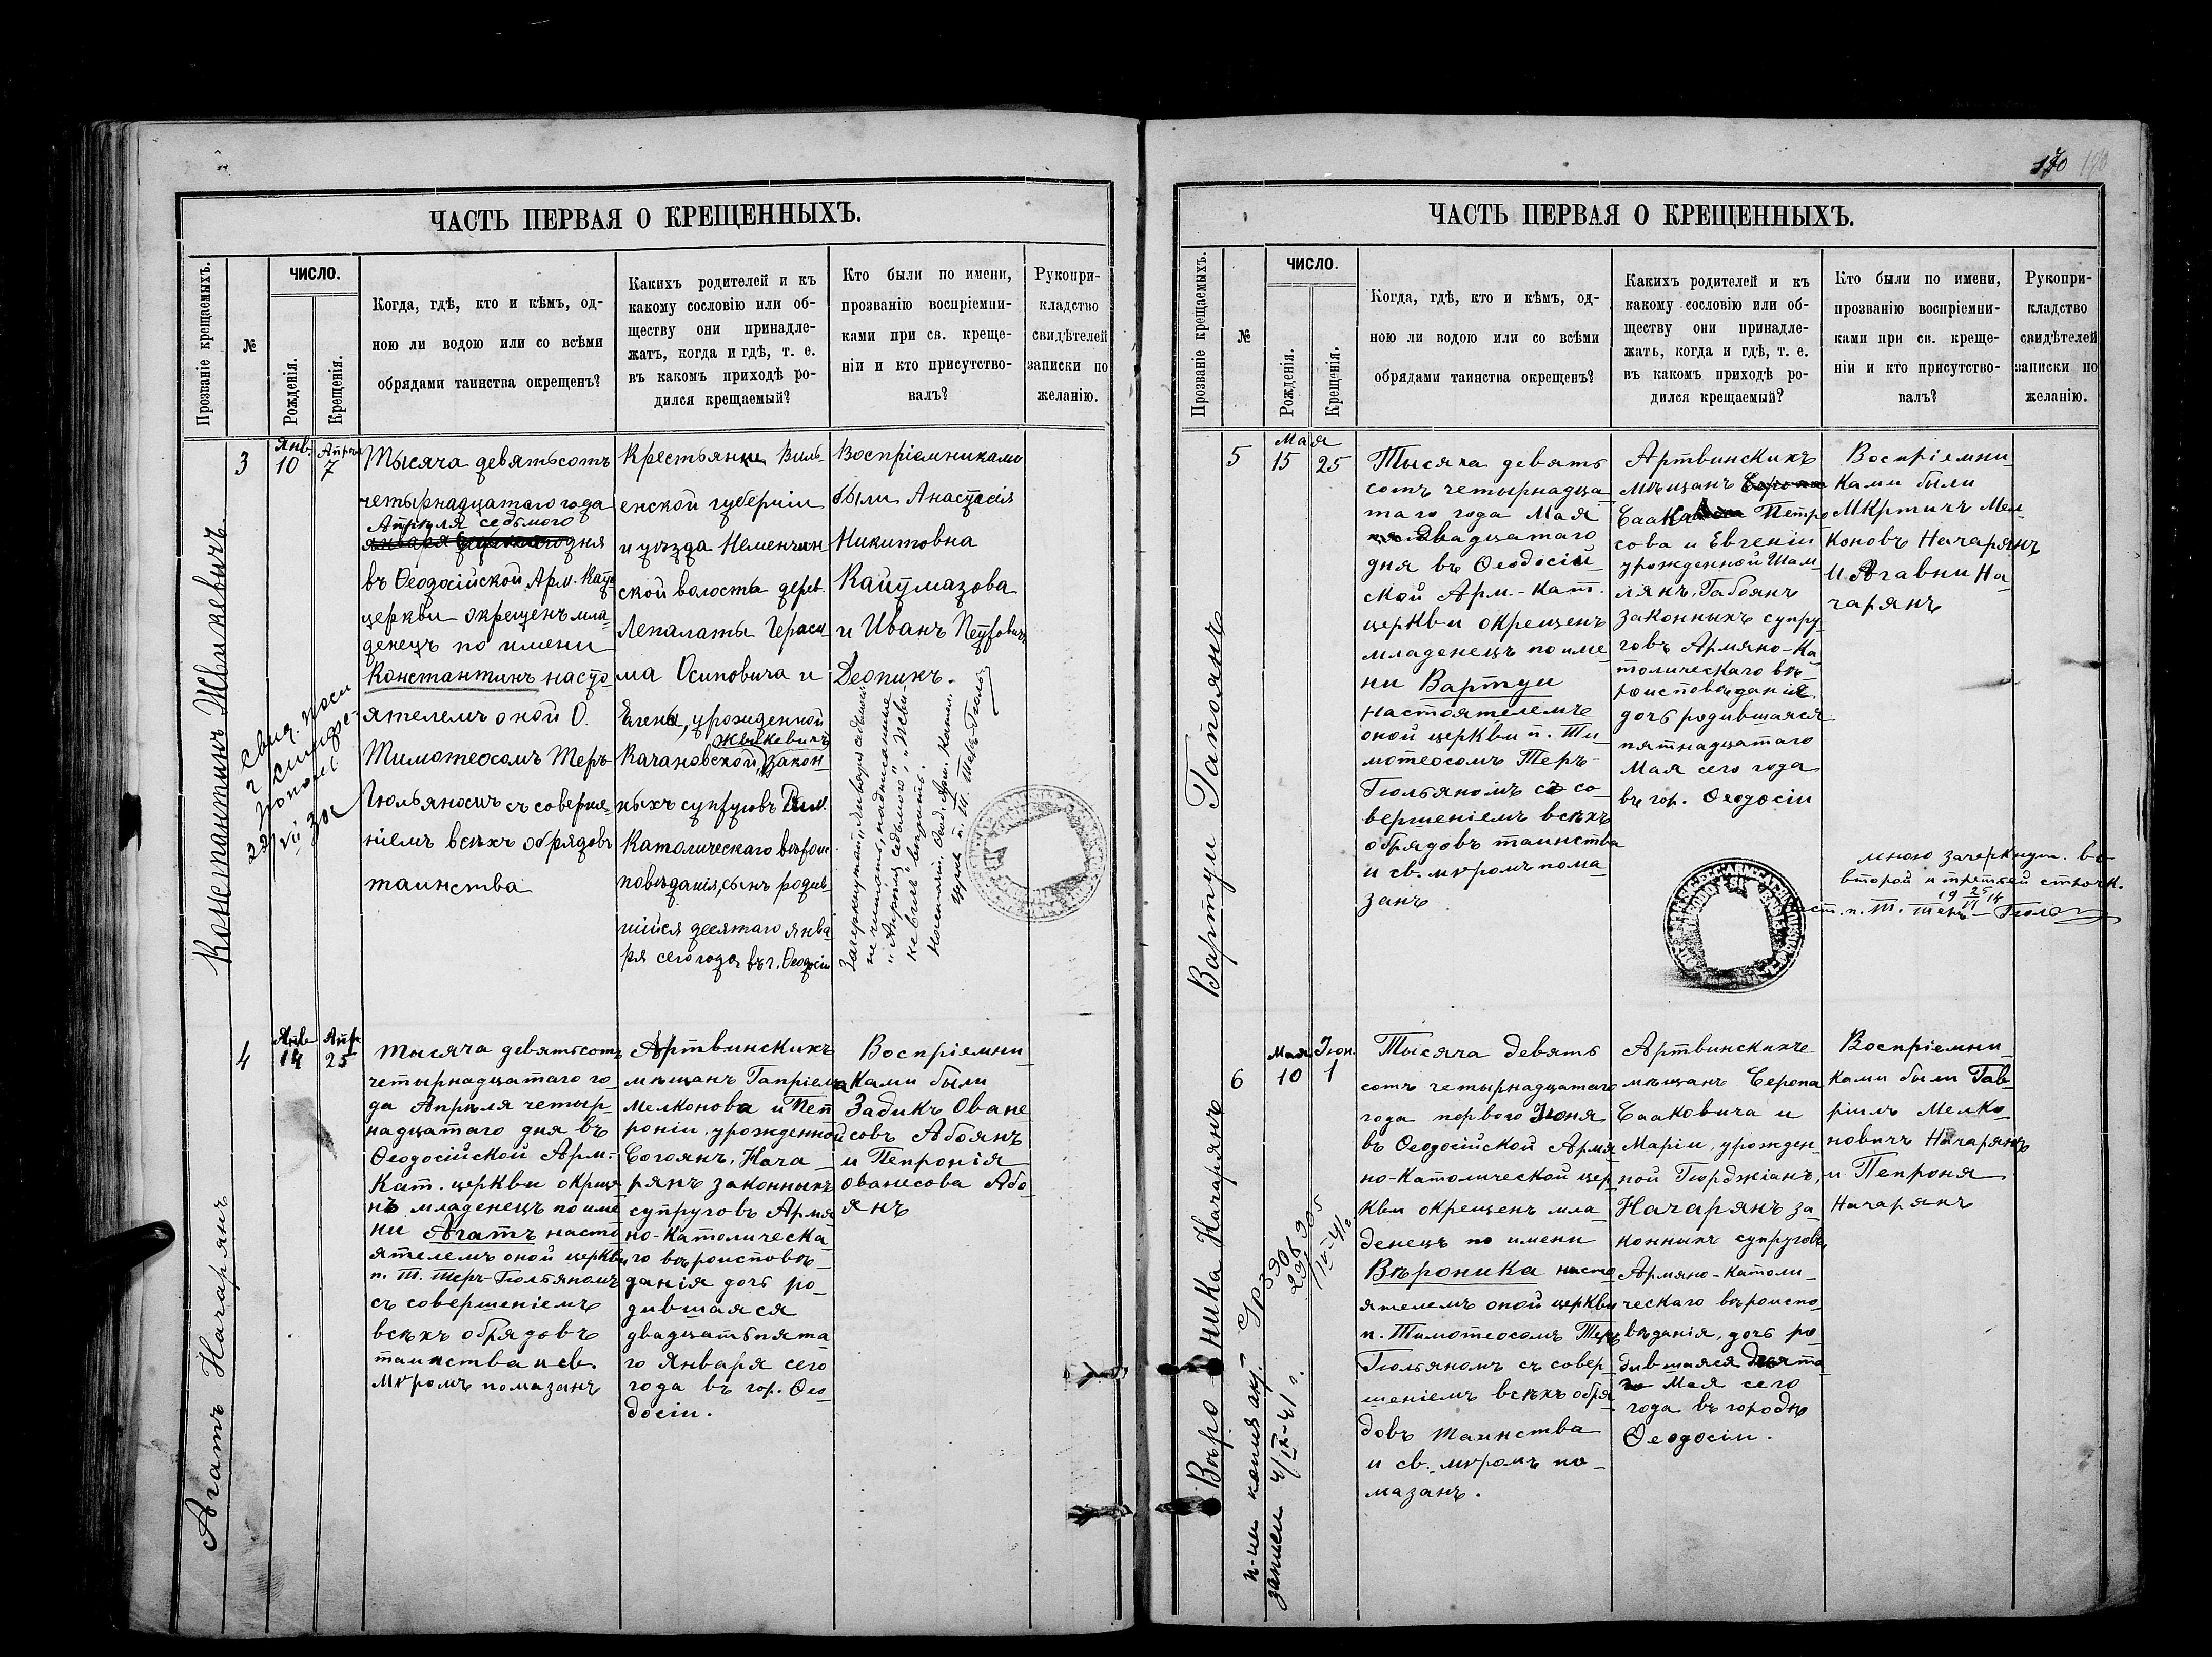 ЧАСТЬ ПЕРВАЯ О КРЕЩЕННЫХЪ.
Прозваніе крещаемыхъ.
№
ЧИСЛО.
Рожденія.
Крещенія.
Когда, гдѣ, кто и кѣмъ, од-
ною ли водою или со всѣми
обрядами таинства окрещенъ?
Какихъ родителей и къ
какому сословію или об-
ществу они принадле-
жатъ, когда и гдѣ, т. е.
въ какомъ приходѣ ро-
дился крещаемый?
Кто были по имени,
прозванію воспріемни-
ками при св. креще-
ніи и кто присутство-
валъ?
Рукопри-
кладство
свидѣтелей
записки по
желанію.
Константинъ Жвикевичъ.
3
Янв.
10
Апрѣля
7
Тысяча девятьсотъ
четырнадцатаго года
Апрѣля седьмого
января дня
въ Ѳеодосійской Арм. Кат.
церкви окрещенъ мла-
денецъ по имени
Константинъ насто-
ятелемъ оной О.
Тимотеосомъ Теръ-
Гюльяномъ съ соверше-
ніемъ всѣхъ обрядовъ
таинства
Крестьяне Виль-
енской губерніи
и уѣзда Неменчин
ской волости дерев.
Лепалаты Гераси
ма Осиповича и
Елены, урожденной
Жвикевичъ
Качановской, закон-
ныхъ супруговъ Рим.
Католическаго вѣроис
повѣданія, сынъ родив-
шійся десятаго янва-
ря сего года въ г. Ѳеодосіи
Воспріемниками
были Анастасія
Никитовна
Кайтмазова
и Иванъ Петровичъ
Деопикъ.
Зачеркнутый „Января седьмого
не читать, надписанные
„Апрѣля седьмого", „Жви-
кевичъ" вѣрить.
Настоятель Ѳеод. Арм. Катол.
церкви п. Т. Теръ-Гюльянъ
4
Янв
14
Апр
25
Агатъ Начарянъ
Тысяча девятьсотъ
четырнадцатаго го-
да Апрѣля четыр-
надцатаго дня въ
Ѳеодосійской Арм.-
Кат. церкви окреще
нъ младенецъ по име
ни Агатъ насто
ятелемъ оной церкви
п. Т. Теръ-Гюльяномъ
съ совершеніемъ
всѣхъ обрядовъ
таинства и св.
мѵромъ помазанъ
Артвинскихъ
мѣщанъ Гапріела
Мелконова и Пеп
роніи урожденной
Согоянъ, Нача-
рянъ законныхъ
супруговъ Армя
но-Католическа-
го вѣроисповѣ-
данія дочь ро-
дившаяся
двадцатьпята
го Января сего
года въ гор. Ѳео
досіи.
Воспріемни-
ками были
Задикъ Оване
совъ Абоянъ
и Пепронія
Ованесова Або-
янъ
170
ЧАСТЬ ПЕРВАЯ О КРЕЩЕННЫХЪ.
Прозваніе крещаемыхъ.
№
ЧИСЛО.
Рожденія.
Крещенія.
Когда, гдѣ, кто и кѣмъ, од-
ною ли водою или со всѣми
обрядами таинства окрещенъ?
Какихъ родителей и къ
какому сословію или об-
ществу они принадле-
жатъ, когда и гдѣ, т. е.
въ какомъ приходѣ ро-
дился крещаемый?
Кто были по имени,
прозванію воспріемни-
ками при св. креще-
ніи и кто присутство-
валъ?
Рукопри-
кладство
свидѣтелей
записки по
желанію.
Вартуи Гапоянъ
5
Мая
15
25
Тысяча девять
сотъ четырнадца-
таго года Мая
двадцатаго
дня въ Ѳеодосій-
ской Арм.-Кат.
церкви окрещенъ
младенецъ по име-
ни Вартуи
настоятелемъ
оной церкви п. Ти-
мотеосомъ Теръ-
Гюльяномъ съ со-
вершеніемъ всѣхъ
обрядовъ таинства
и св. мѵромъ пома-
занъ
Артвинскихъ
мѣщанъ
Саака Петро
сова и Евгеніи
урожденной Шам-
лянъ, Габоянъ
законныхъ супру-
говъ Армяно-Ка-
толическаго вѣ-
роисповѣданія.
дочь родившаяся
пятнадцатаго
Мая сего года
въ гор. Ѳеодосіи
Воспріемни-
ками были
Мкртичъ Мел-
коновъ Начарянъ
и Агавни На-
чарянъ
мною зачеркнут. во
второй и третьей строк.
19 25/VI 14
наст. п. Т. Теръ-Гюльянъ
6
Мая
10
Іюн.
1
Вѣроника Начарянъ
Тысяча девять
сотъ четырнадцатаго
года перваго Іюня
въ Ѳеодосійской Армя
но-Католической цер-
кви окрещенъ мла-
денецъ по имени
Вѣроника насто-
ятелемъ оной церкви
п. Тимотеосомъ Теръ
Гюльяномъ съ совер-
шеніемъ всѣхъ обря-
довъ таинства
и св. мѵромъ по-
мазанъ.
Артвинскихъ
мѣщанъ Серопа
Сааковича и
Маріи, урожден-
ной Гюрджіанъ,
Начарянъ за-
конныхъ супруговъ,
Армяно-Католи-
ческаго вѣроиспо-
вѣданія, дочь ро-
дившаяся десята
го Мая сего
года въ городѣ
Ѳеодосіи.
Воспріемни-
ками были Гав-
ріилъ Мелко-
новичъ Начарянъ
и Пепроня
Начарянъ